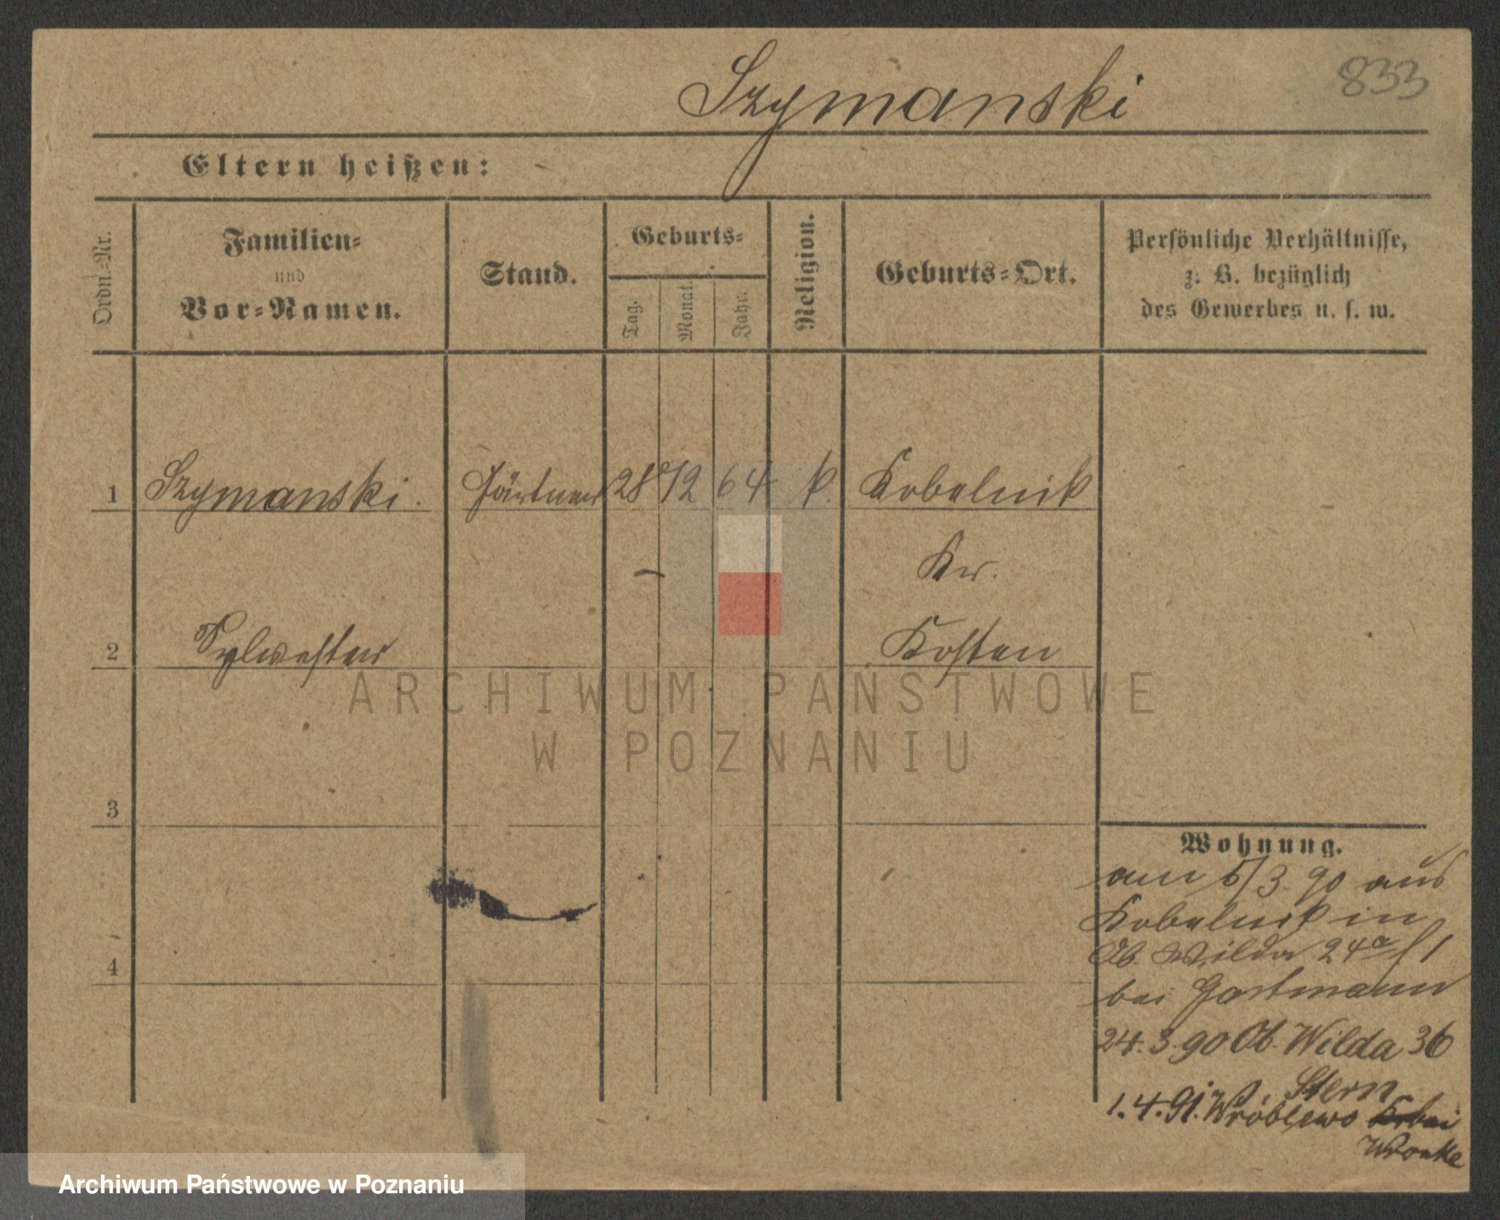 833
Szymanski
Eltern heißen:
Ordn.-Nr.
Familien-
und
Vor-Namen.
Stand.
Geburts-
Tag.
Monat.
Jahr.
Religion.
Geburts-Ort.
Persönliche Verhältnisse,
z. B. bezüglich
des Gewerbes u. s. w.
1 Szymanski. Gärtner 28 12 64 k. Kobelnik
Kr.
2 Sylvester Kosten
3
4
Wohnung.
am 5/3 90 aus
Kobelnik in
Ob. Wilda 24a
bei Hartmann
24.3.90 Ob. Wilda 36
Stern
1.4.91. Wróblewo bei
Wronke
ARCHIWUM PAŃSTWOWE
W POZNANIU
Archiwum Państwowe w Poznaniu